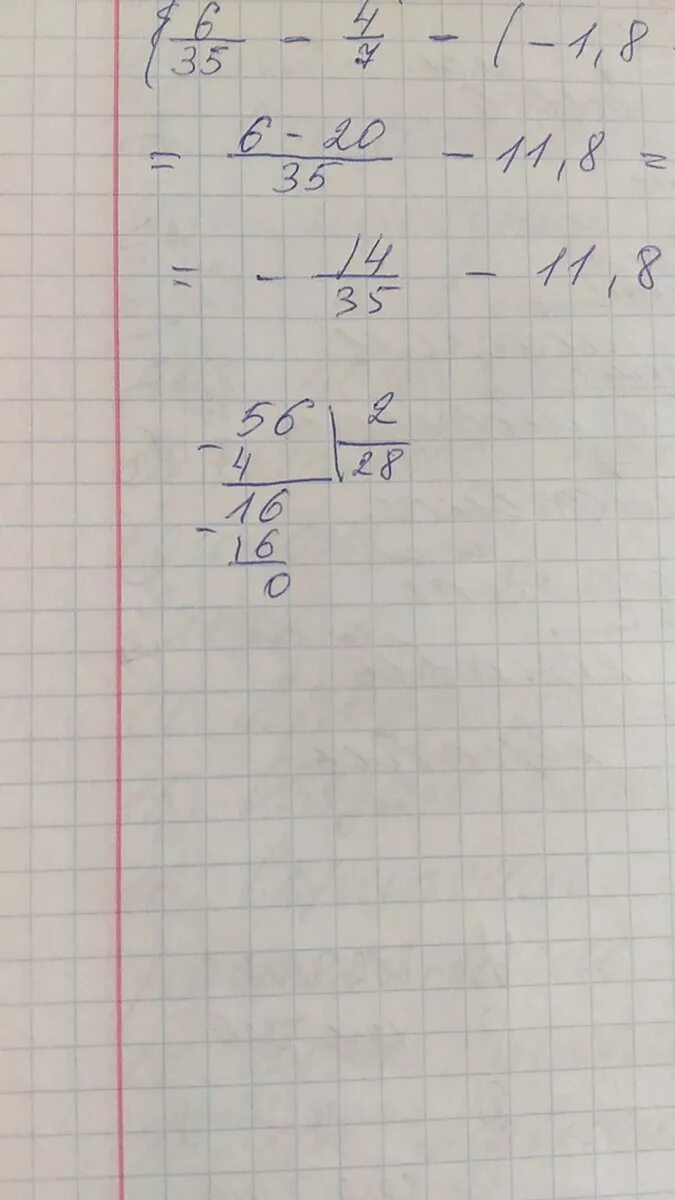 (6/35 - 4/7 - (-1,8
= (6 - 20)/35 - 11,8 =
= - 14/35 - 11,8
- 56 | 2
4 | 28
16
- 16
0